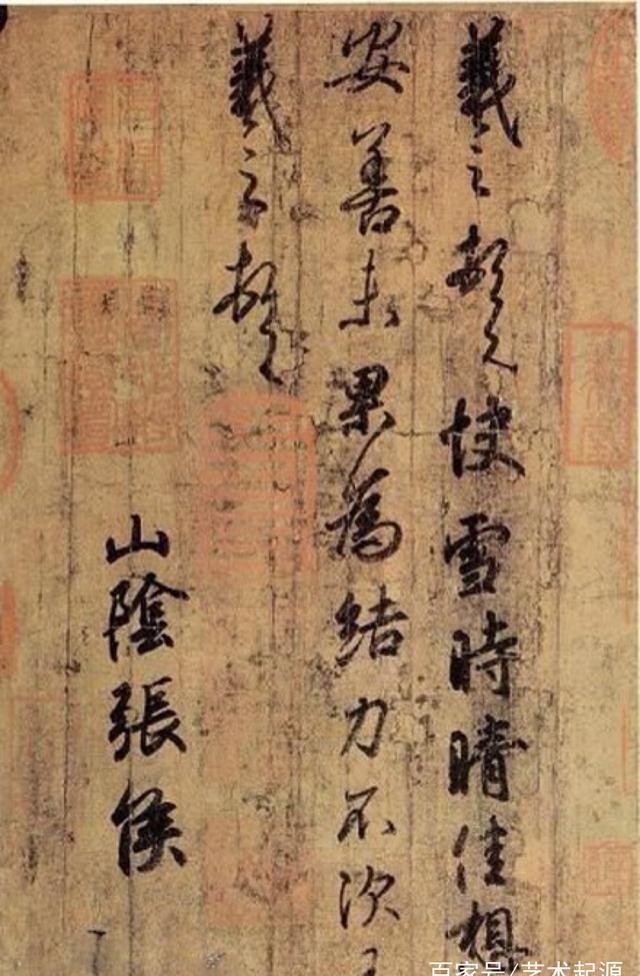 羲之頓首快雪時晴佳想
安善未果為結力不次王
羲之頓首
山陰張侯
百家号/艺术起源